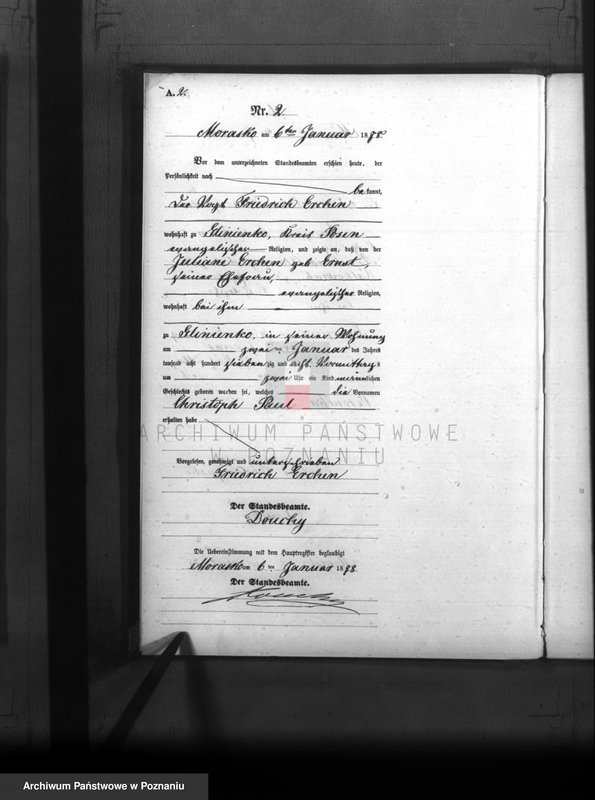 A. 2.
Nr. 2
Morasko am 6ten Januar 1878.
Vor dem unterzeichneten Standesbeamten erschien heute, der
Persönlichkeit nach
bekannt,
Der Vogt Friedrich Erchen
wohnhaft zu Glinienko, Kreis Posen
evangelischer Religion, und zeigte an, daß von der
Juliane Erchen geb Ernst
seiner Ehefrau,
evangelischer Religion,
wohnhaft bei ihm
zu Glinienko, in seiner Wohnung
am zwei ten Januar des Jahres
tausend acht hundert siebenzig und acht Vormittags
um zwei Uhr ein Kind männlichen
Geschlechts geboren worden sei, welches die Vornamen
Christoph Paul
erhalten habe
ARCHIWUM PAŃSTWOWE
W POZNANIU
Vorgelesen, genehmigt und unterschrieben
Friedrich Erchen
Der Standesbeamte.
Douchy
Die Uebereinstimmung mit dem Hauptregister beglaubigt
Morasko am 6 ten Januar 1878.
Der Standesbeamte.
Archiwum Państwowe w Poznaniu